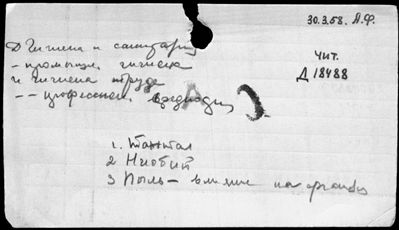 30.3.58. А.Ф.
Д Гигиена и санитария
– промышл. гигиена
и гигиена труда
–– профессион. вредности
чит.
Д 18488
1. Тантал
2 Ниобий
3 Пыль – влияние на